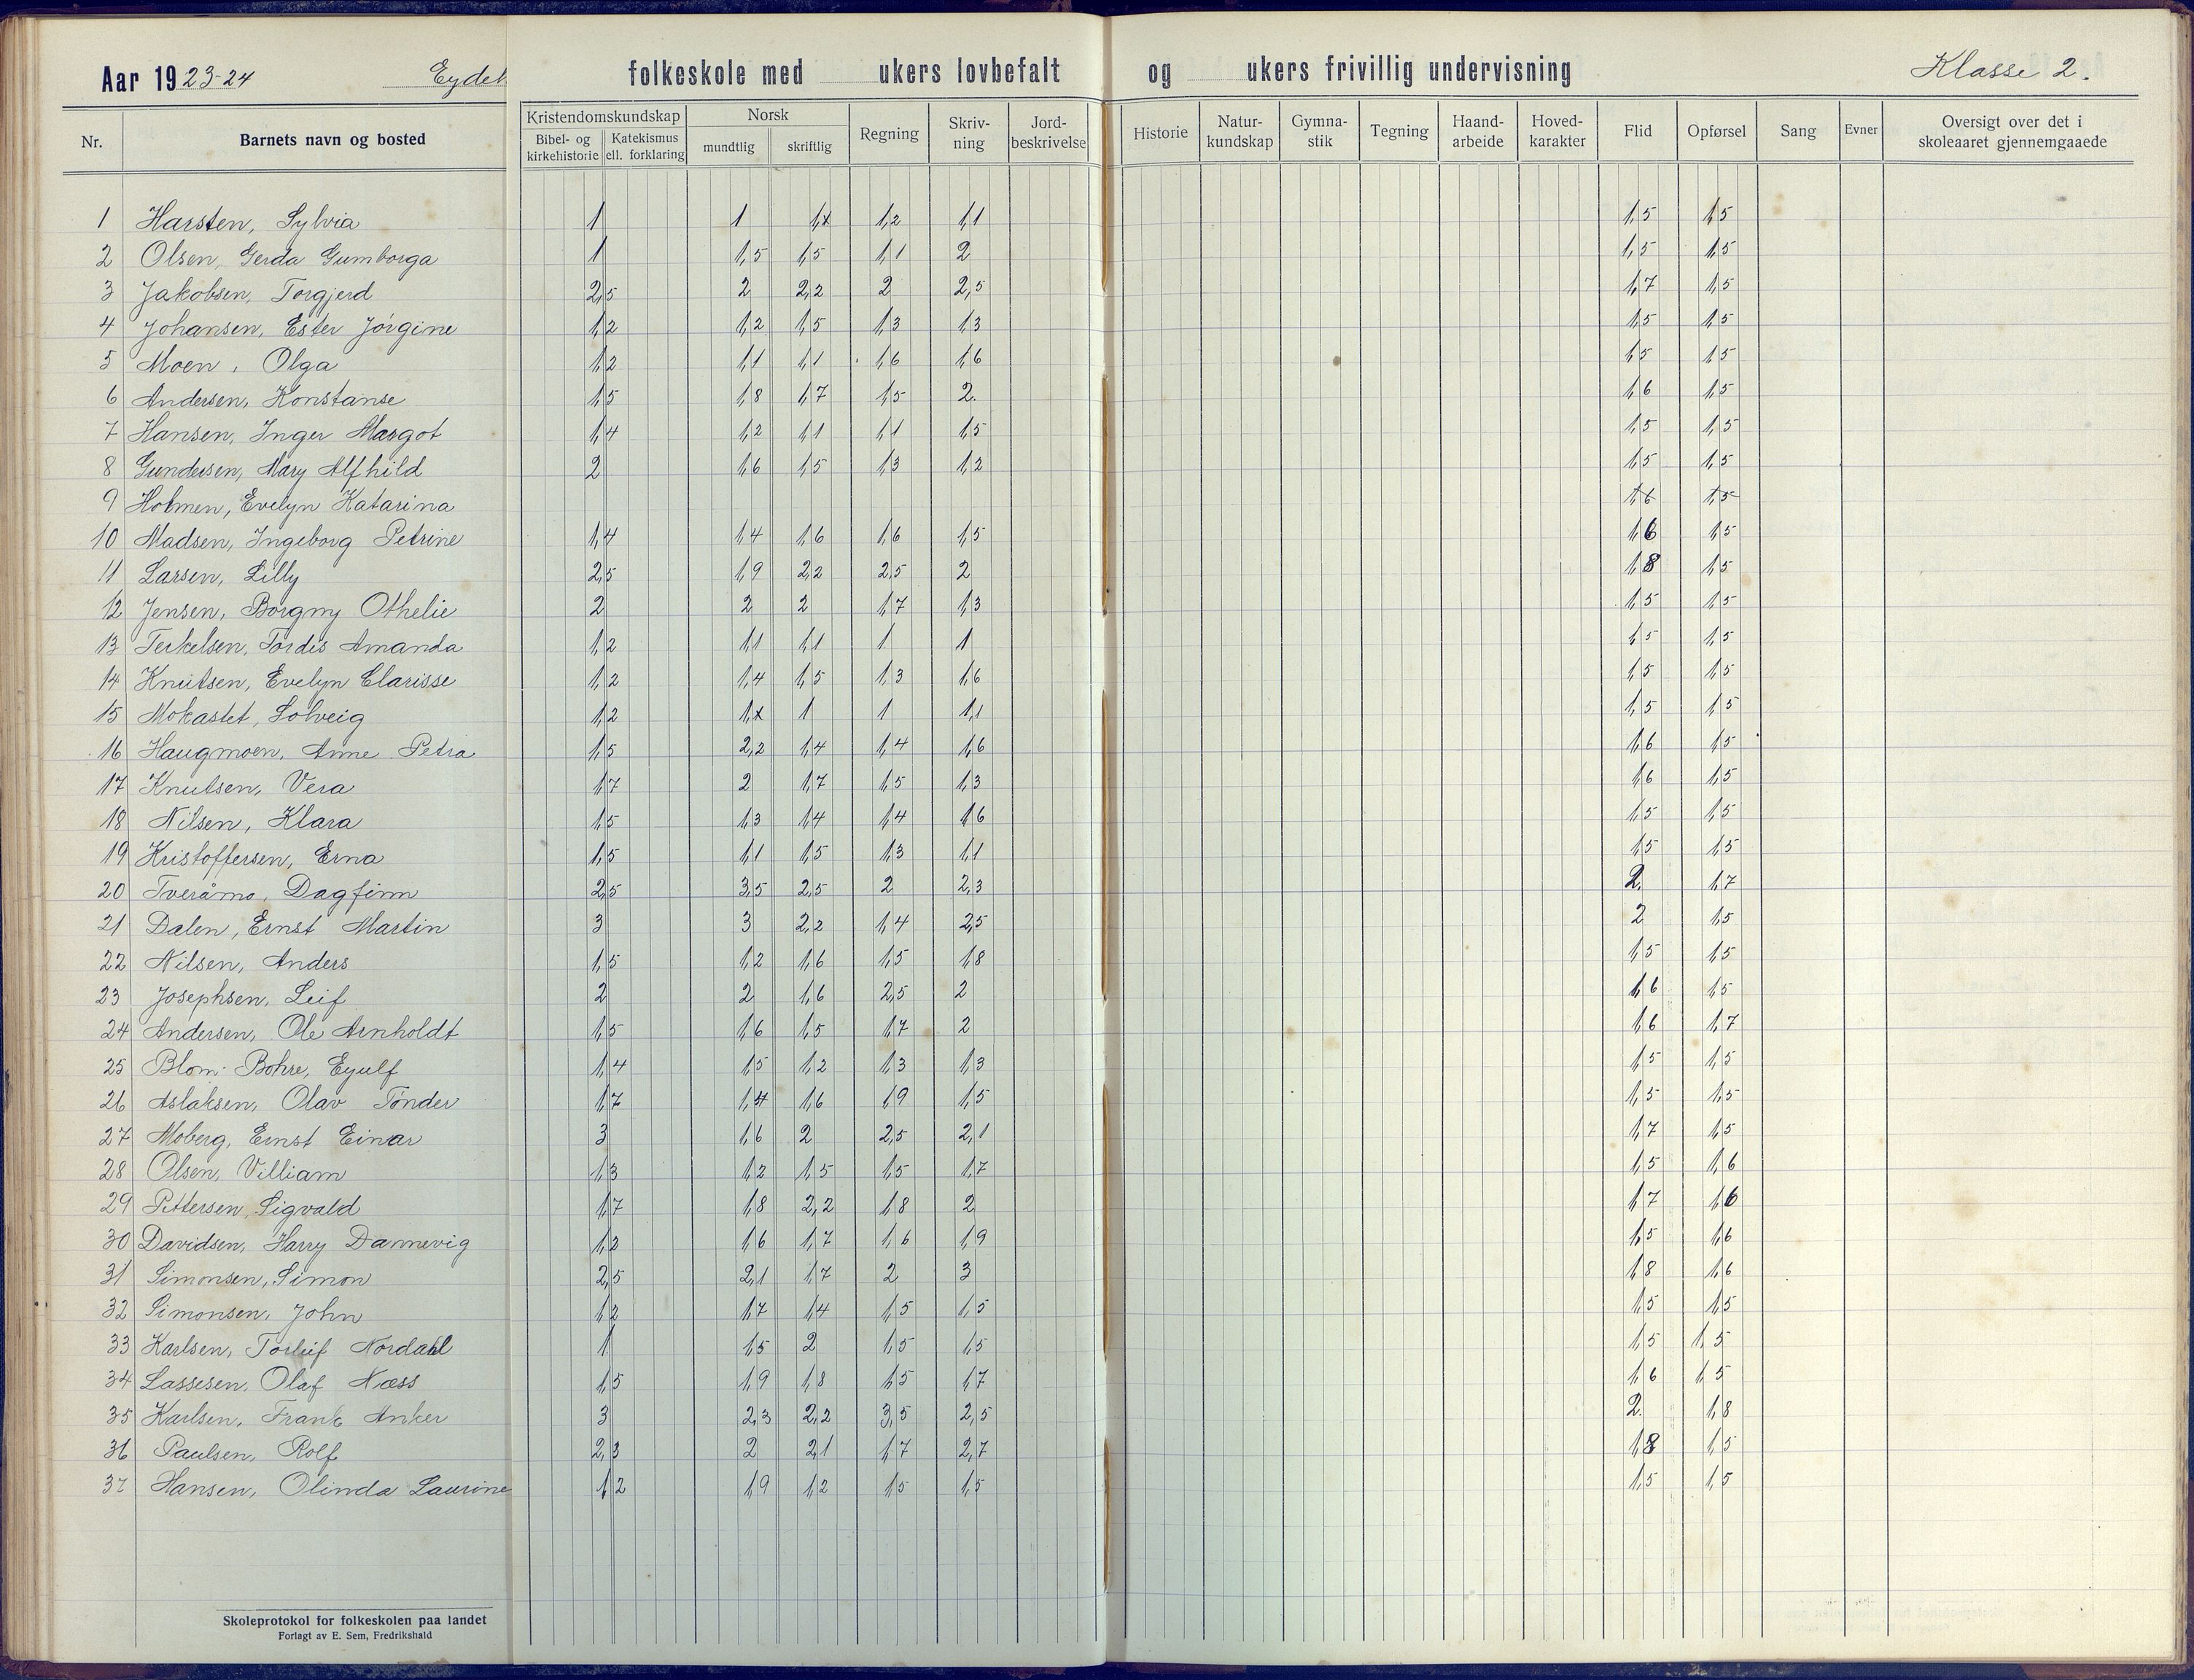 Aar 1923-24 Eydeh folkeskole med ukers lovbefalt og ukers frivillig undervisning Klasse 2.
Nr. Barnets navn og bosted Kristendomskundskap Bibel- og kirkehistorie Katekismus ell. forklaring Norsk mundtlig skriftlig Regning Skriv-ning Jord-beskrivelse Historie Natur-kundskap Gymna-stik Tegning Haand-arbeide Hoved-karakter Flid Opførsel Sang Evner Oversigt over det i skoleaaret gjennemgaaede
1 Harsten, Sylvia 1 1 1,x 1,2 1,1 1,5 1,5
2 Olsen, Gerda Gumborga 1 1,5 1,5 1,1 2 1,5 1,5
3 Jakobsen, Torgjerd 2,5 2 2,2 2 2,5 1,7 1,5
4 Johansen, Ester Jørgine 1,2 1,2 1,5 1,3 1,3 1,5 1,5
5 Moen, Olga 1,2 1,1 1,1 1,6 1,6 1,5 1,5
6 Andersen, Konstanse 1,5 1,8 1,7 1,5 2. 1,6 1,5
7 Hansen, Inger Margot 1,4 1,2 1,1 1,1 1,5 1,5 1,5
8 Gundersen, Mary Alfhild 2 1,6 1,5 1,3 1,2 1,5 1,5
9 Holmen, Evelyn Katarina 1,6 1,5
10 Madsen, Ingeborg Petrine 1,4 1,4 1,6 1,6 1,5 1,6 1,5
11 Larsen, Lilly 2,5 1,9 2,2 2,5 2 1,8 1,5
12 Jensen, Borgny Othelie 2 2 2 1,7 1,3 1,5 1,5
13 Terkelsen, Tordis Amanda 1,2 1,1 1,1 1 1 1,5 1,5
14 Knutsen, Evelyn Clarisse 1,2 1,4 1,5 1,3 1,6 1,5 1,5
15 Mokastet, Solveig 1,2 1,x 1 1 1,1 1,5 1,5
16 Haugmoen, Anne Petra 1,5 2,2 1,4 1,4 1,6 1,6 1,5
17 Knutsen, Vera 1,7 2 1,7 1,5 1,3 1,6 1,5
18 Nilsen, Klara 1,5 1,3 1,4 1,4 1,6 1,5 1,5
19 Kristoffersen, Erna 1,5 1,1 1,5 1,3 1,1 1,5 1,5
20 Tveråmo, Dagfinn 2,5 3,5 2,5 2 2,3 2. 1,7
21 Dalen, Ernst Martin 3 3 2,2 1,4 2,5 2 1,5
22 Nilsen, Anders 1,5 1,2 1,6 1,5 1,8 1,5 1,5
23 Josephsen, Leif 2 2 1,6 2,5 2 1,6 1,5
24 Andersen, Ole Arnholdt 1,5 1,6 1,5 1,7 2 1,6 1,7
25 Blom-Bohre, Eyulf 1,4 1,5 1,2 1,3 1,3 1,5 1,5
26 Aslaksen, Olav Tønder 1,7 1,4 1,6 1,9 1,5 1,5 1,5
27 Moberg, Ernst Einar 3 1,6 2 2,5 2,1 1,7 1,5
28 Olsen, Villiam 1,3 1,2 1,5 1,5 1,7 1,5 1,6
29 Pettersen, Sigvald 1,7 1,8 2,2 1,8 2 1,7 1,6
30 Davidsen, Harry Dannevig 1,2 1,6 1,7 1,6 1,9 1,5 1,6
31 Simonsen, Simon 2,5 2,1 1,7 2 3 1,8 1,6
32 Simonsen, John 1,2 1,7 1,4 1,5 1,5 1,5 1,5
33 Karlsen, Torleif Nordahl 1 1,5 2 1,5 1,5 1,5 1,5
34 Lassesen, Olaf Næss 1,5 1,9 1,8 1,5 1,7 1,6 1,5
35 Karlsen, Frank Anker 3 2,3 2,2 3,5 2,5 2. 1,8
36 Paulsen, Rolf 2,3 2 2,1 1,7 2,7 1,8 1,5
37 Hansen, Olinda Laurine 1,2 1,9 1,2 1,5 1,5 1,5 1,5
Skoleprotokol for folkeskolen paa landet
Forlagt av E. Sem, Fredrikshald